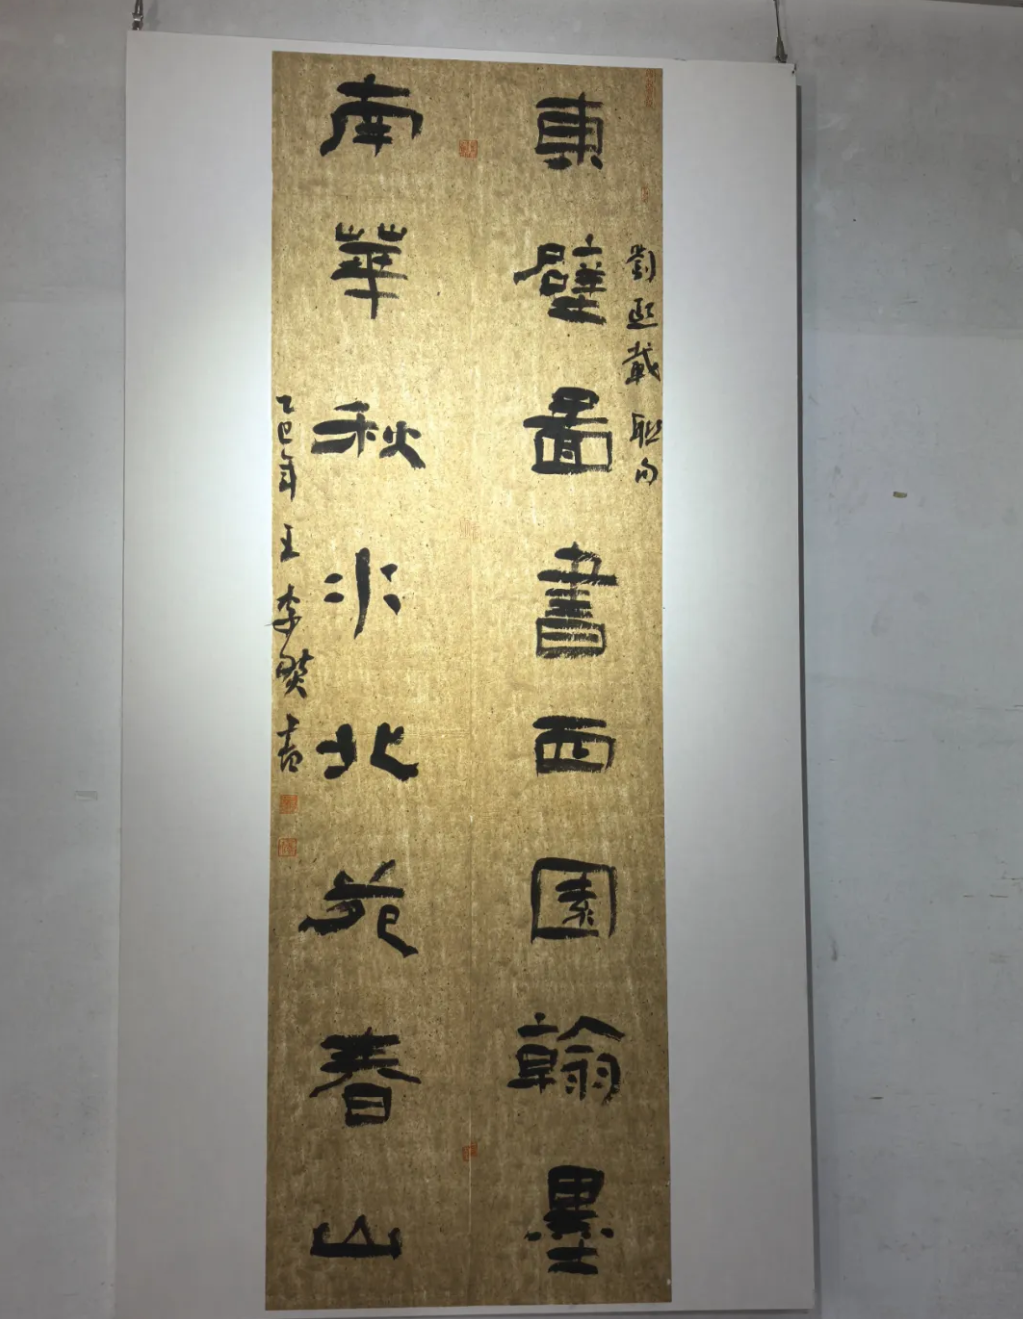 劉熙載聯句
東壁圖書西園翰墨
南華秋水北苑春山
乙巳年王李